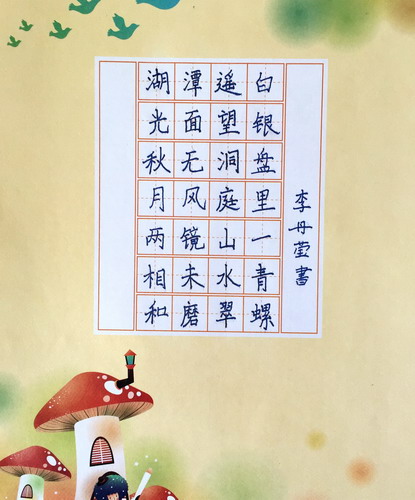 湖光秋月两相和
潭面无风镜未磨
遥望洞庭山水翠
白银盘里一青螺
李丹莹書